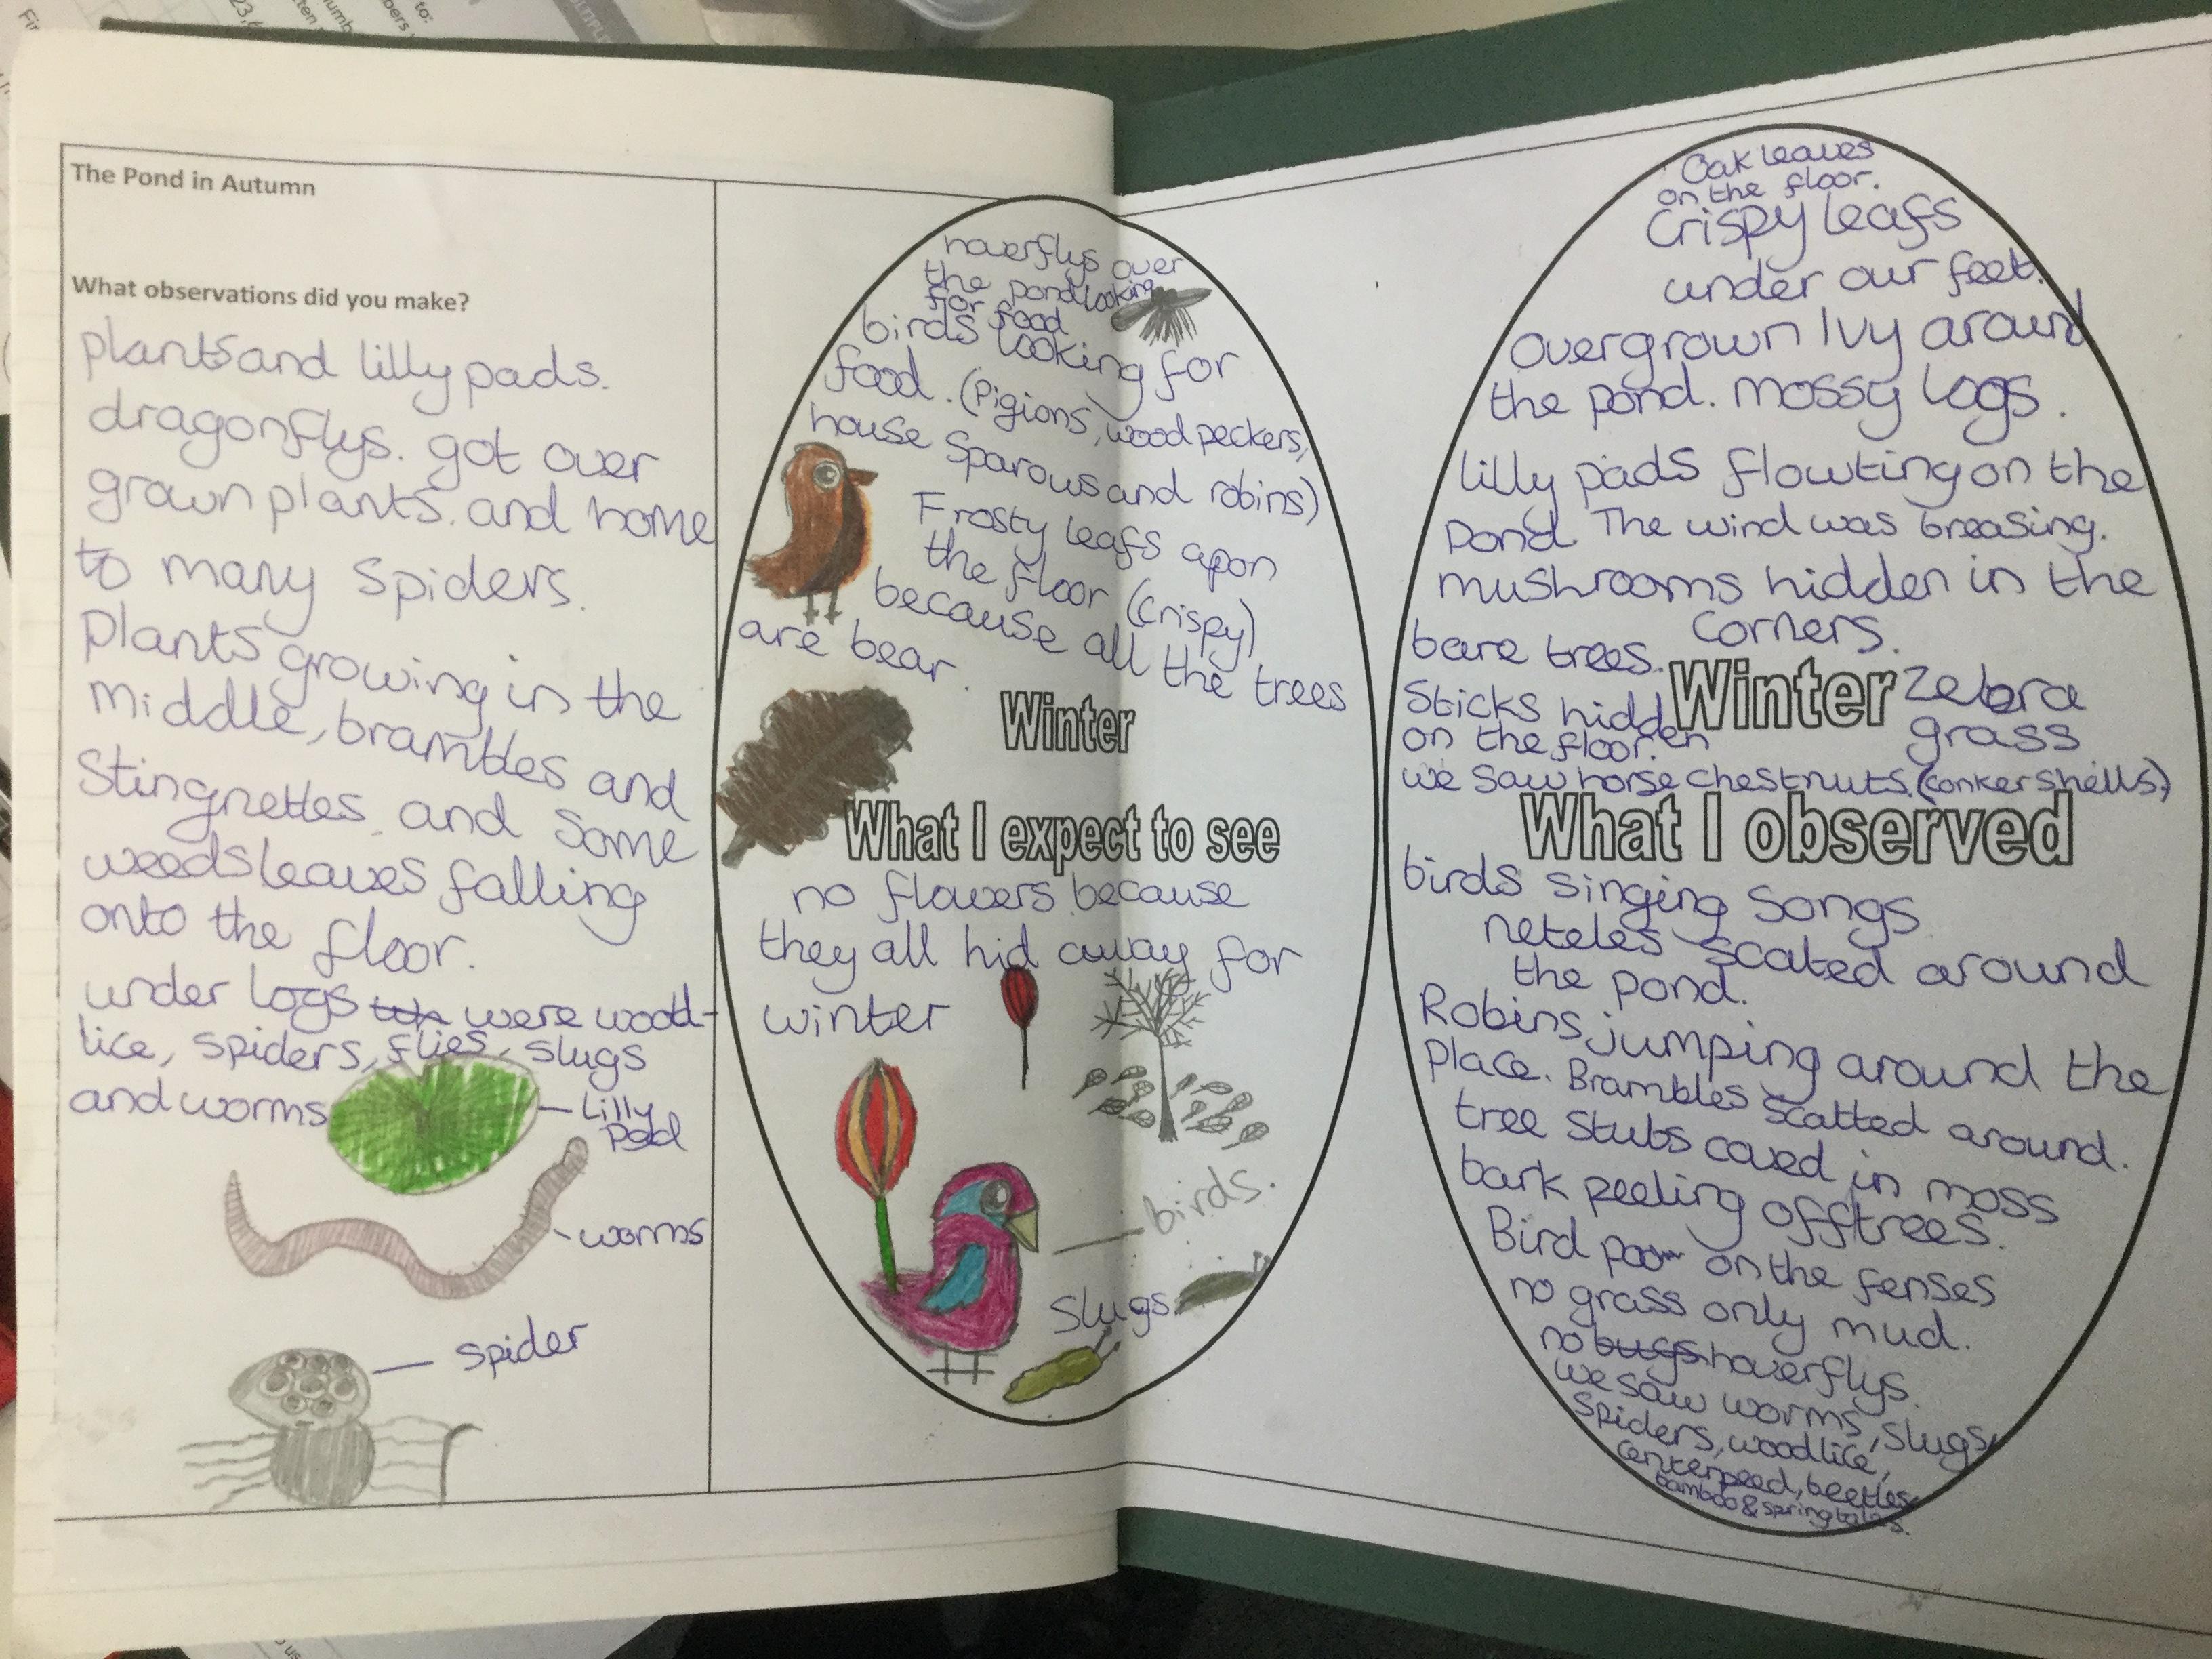 The Pond in Autumn
What observations did you make?
plants and lilly pads.
dragonflys. got over
grown plants. and home
to many spiders.
Plants growing in the
middle, brambles and
Stingnettes. and some
weeds leaves falling
onto the floor.
under logs were wood-
lice, spiders, flies, slugs
and worms
Lilly
Pad
worms
spider
hoverflys over
the pond looking
for food
birds looking for
food. (Pigions, wood peckers,
house Sparows and robins)
Frosty leafs apon
the floor (Crispy)
because all the trees
are bear.
Winter
What I expect to see
no flowers because
they all hid away for
winter
birds.
Slugs
Oak leaves
on the floor.
Crispy leafs
under our feet.
Overgrown Ivy around
the pond. Mossy Logs.
Lilly pads flowting on the
Pond. The wind was breasing.
mushrooms hidden in the
Corners.
bare trees.
Winter
Zebra
grass
Sticks hidden
on the floor.
we saw horse chestnuts. (conker shells)
What I observed
birds singing songs
neteles scated around
the pond.
Robins jumping around the
Place. Brambles scatted around.
tree stubs coved in moss
bark peeling off trees.
Bird poo on the fenses
no grass only mud.
no bugs hoverflys.
we saw worms, slugs,
Spiders, woodlice,
Centerpeed, beetles,
bamboo & springtales.